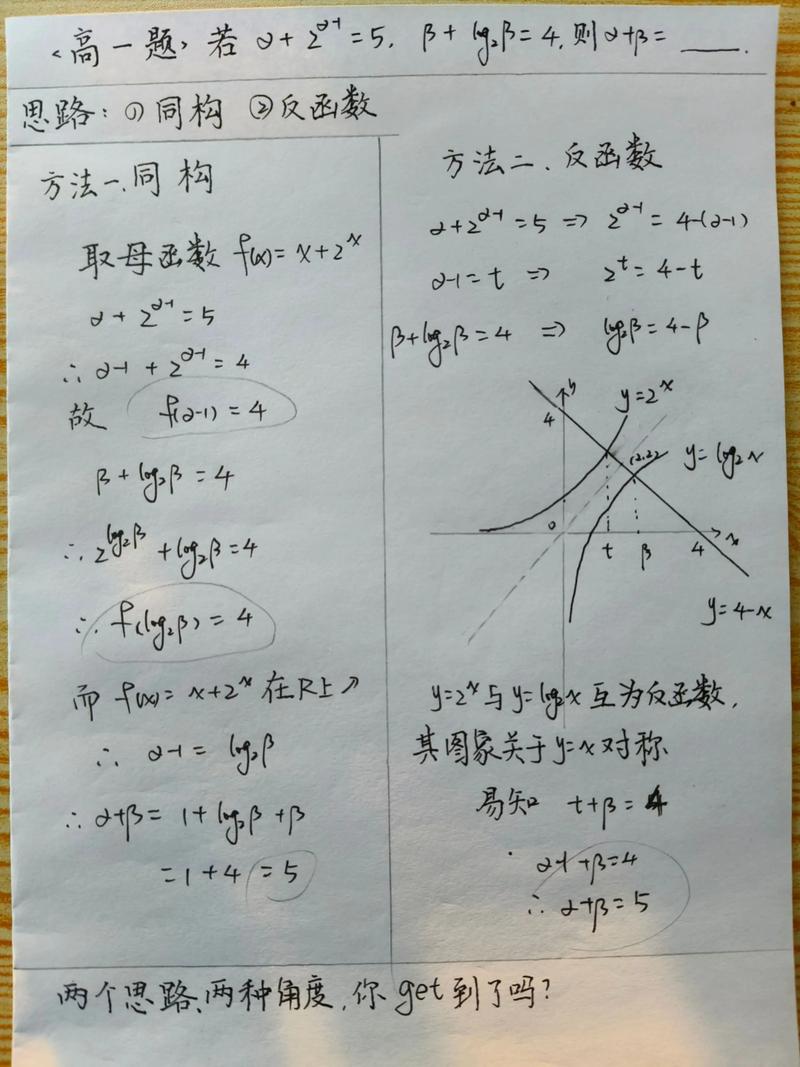 <高一题> 若 α+2^{α-1}=5, β+log₂β=4, 则 α+β= ____.
思路: ①同构 ②反函数
方法一、同构
取母函数 f(x)=x+2^x
α+2^{α-1}=5
∴ α-1+2^{α-1}=4
故 f(α-1)=4
β+log₂β=4
∴ 2^{log₂β}+log₂β=4
∴ f(log₂β)=4
而 f(x)=x+2^x 在R上↗
∴ α-1=log₂β
∴ α+β=1+log₂β+β
=1+4=5
方法二、反函数
α+2^{α-1}=5 ⇒ 2^{α-1}=4-(α-1)
α-1=t ⇒ 2^t=4-t
β+log₂β=4 ⇒ log₂β=4-β
y
4
y=2^x
(2,2)
y=log₂x
0
t
β
4
x
y=4-x
y=2^x与y=log₂x互为反函数,
其图象关于y=x对称
易知 t+β=4
α-1+β=4
∴ α+β=5
两个思路、两种角度,你get到了吗?